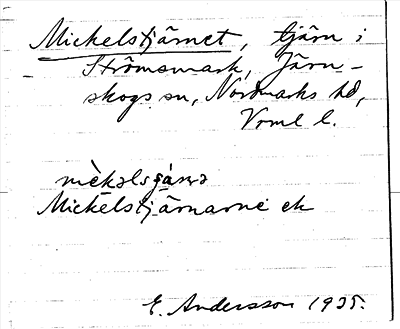 Mickelstjärnet, tjärn i
Strömsmark, Järn-
skogs sn, Nordmarks hd,
Vrml l.
mὲkəlsɟá̀ɳə
Mickelstjärnarne ek
E. Andersson 1935.